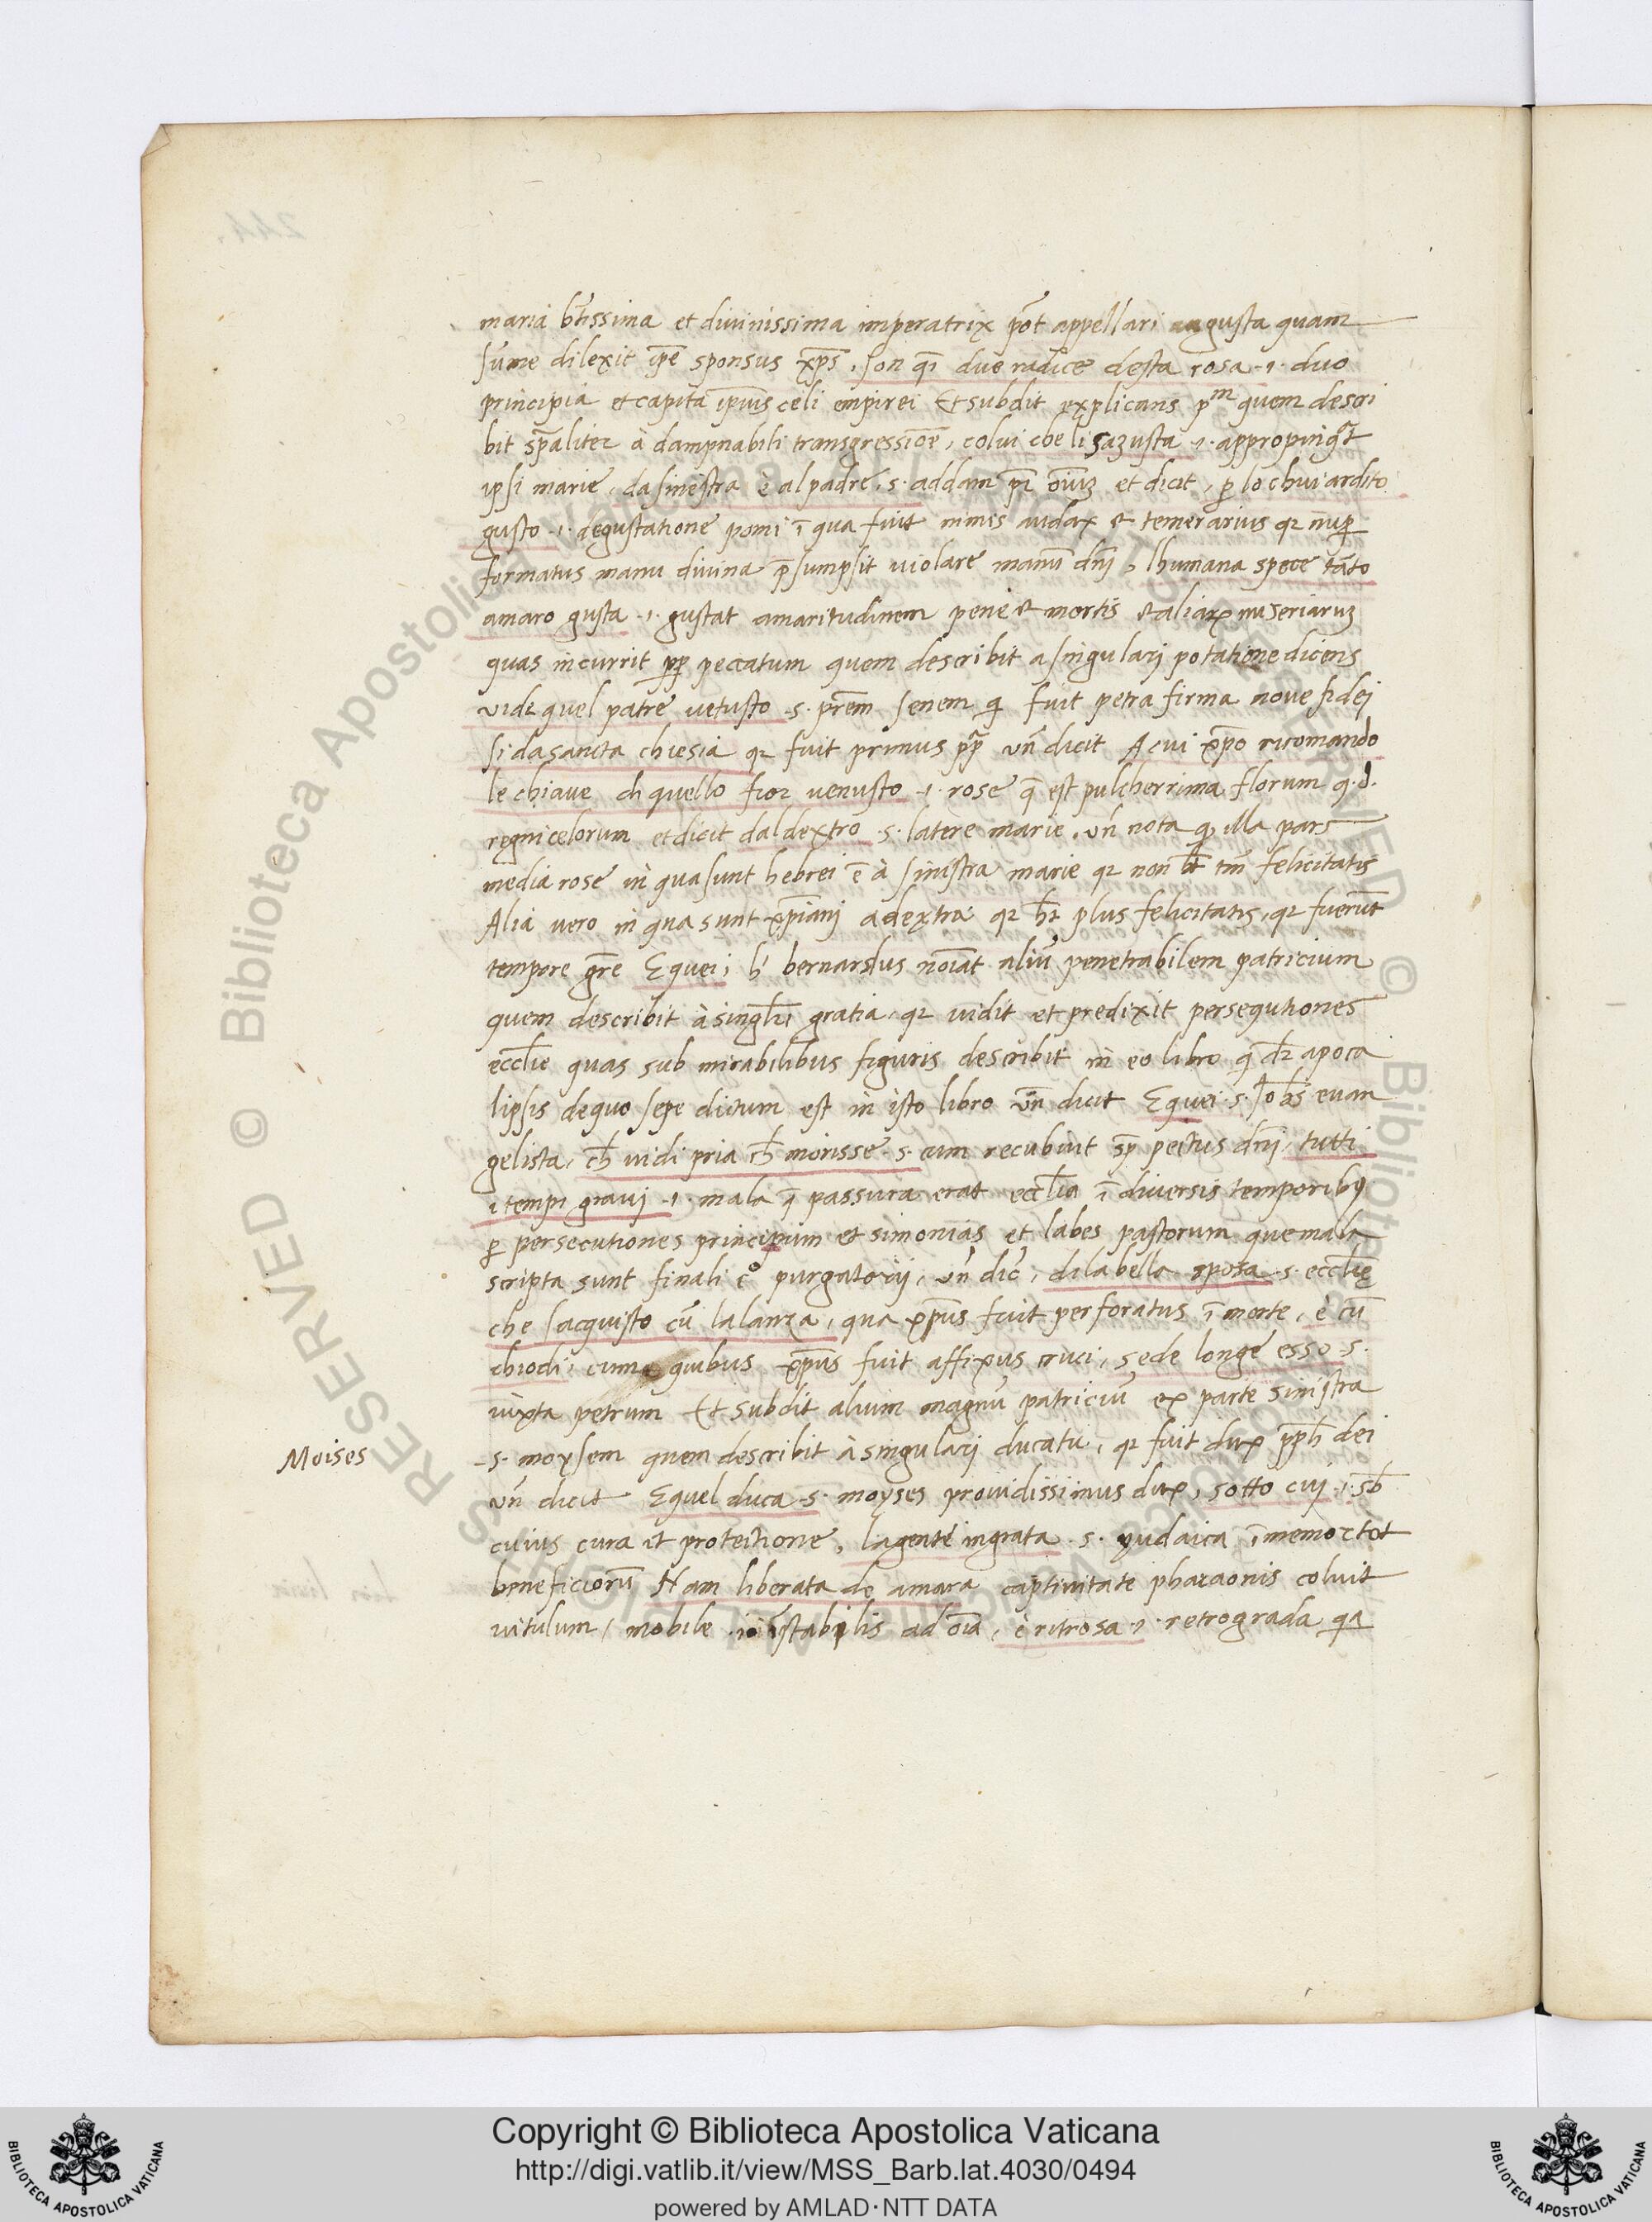 244.
maria btissima et divinissima imperatrix pot appellari augusta quam
sume dilexit ipe sponsus xps, son qi due radice desta rosa .i. duo
principia et capita ipius celi empirei Et subdit explicans pm quem descri
bit spaliter à dampnabili transgressione, colui che li sazusta .i. appropinqt
ipsi marie, da sinestra è al padre, s. addam pr oiuz et dicit, p lo chui ardito
gusto .i. degustatione pomi ī qua fuit nimis audax et temerarius qz nup
formatus manu divina psumpsit violare manū dni, lhumana spece tāto
amaro gusta .i. gustat amaritudinem pene et mortis et aliaꝝ miseriaruz
quas incurrit pp peccatum quem describit a singulari potatione dicens
vide quel patre vetusto .s. prem senem qi fuit petra firma nove fidei
si da sancta chiesia qz fuit primus pp un dicit A cui xpo ricomando
le chiave di quello fior venusto .i. rose q est pulcherrima florum q.d.
regni celorum et dicit dal dextro .s. latere marie, un nota qd illa pars
media rose in qua sunt hebrei ē à sinistra marie qz non ht tm felicitatis
Alia vero in qua sunt xpiani a dextra qz ht plus felicitatis, qz fuerūt
tempore gre E quei, b' bernardus noiat aliū penetrabilem patricium
quem describit à singlri gratia, qz vidit et predixit persequtiones
ecclie quas sub mirabilibus figuris describit in eo libro qi dr apoca
lipsis de quo sepe dictum est in isto libro un dicit E quei .s. Johes evan
gelista, ch vidi pria ch morisse .s. cum recubuit sp pectus dni, tutti
i tempi gravi .i. mala q passura erat ecclia ī diversis temporibꝰ
p persecutiones principum et simonias et labes pastorum que mala
scripta sunt finali co purgatorij, un dic, di la bella sposa .s. ecclie
che sacquisto cū la lanza, qua xpus fuit perforatus ī morte, è cū
chiodi, cum quibus xpus fuit affixus cruci, sede longe esso .s.
iuxta petrum Et subdit alium magnū patriciū ex parte sinistra
Moises
.s. moysem quem describit à singulari ducatu, qz fuit dux pph dei
un dicit E quel duca .s. moyses providissimus dux, sotto cuj .i. sb
cuius cura et protectione, la gente ingrata .s. yudaica īmemor tot
beneficiorū Nam liberata de amara captivitate pharaonis coluit
vitulum, mobile .i. īstabilis ad oia, è ritrosa .i. retrograda qa
Copyright © Biblioteca Apostolica Vaticana
http://digi.vatlib.it/view/MSS_Barb.lat.4030/0494
powered by AMLAD·NTT DATA